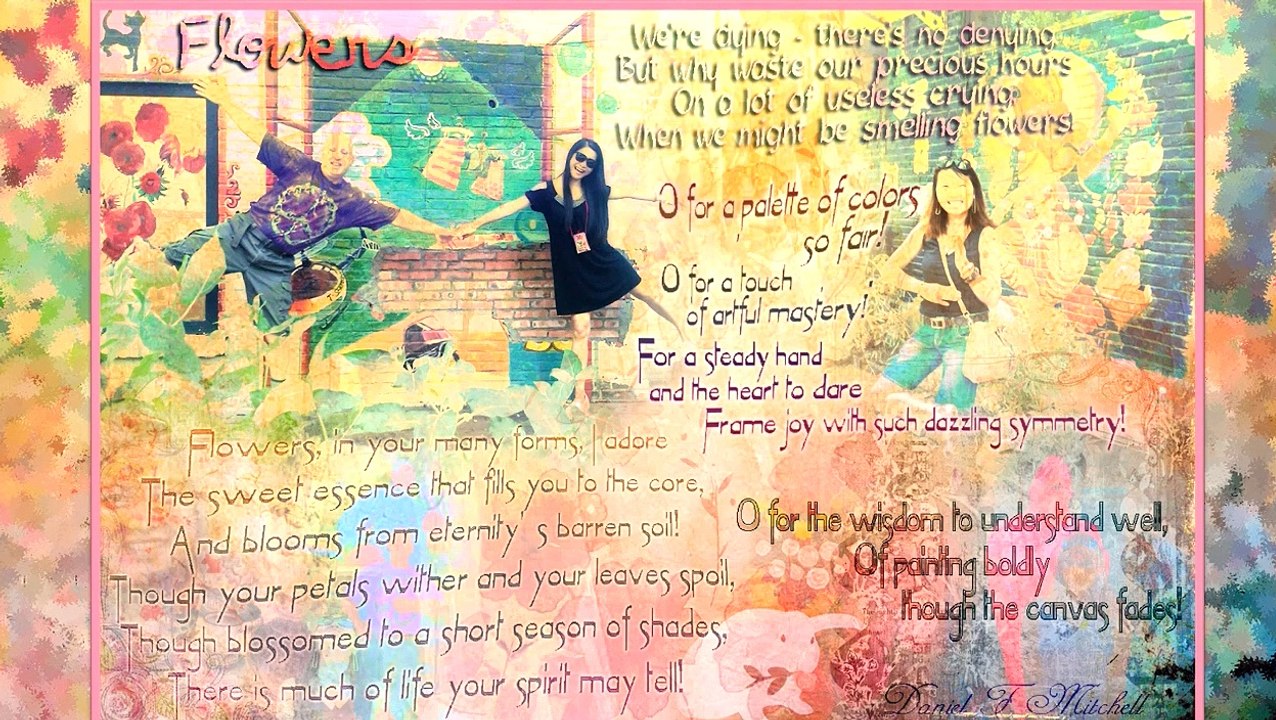 Flowers
We're dying - there's no denying
But why waste our precious hours
On a lot of useless crying
When we might be smelling flowers!
O for a palette of colors
so fair!
O for a touch
of artful mastery!
For a steady hand
and the heart to dare
Frame joy with such dazzling symmetry!
Flowers, in your many forms, I adore
The sweet essence that fills you to the core,
And blooms from eternity's barren soil!
Though your petals wither and your leaves spoil,
Though blossomed to a short season of shades,
There is much of life your spirit may tell!
O for the wisdom to understand well,
Of painting boldly
though the canvas fades!
Daniel F Mitchell